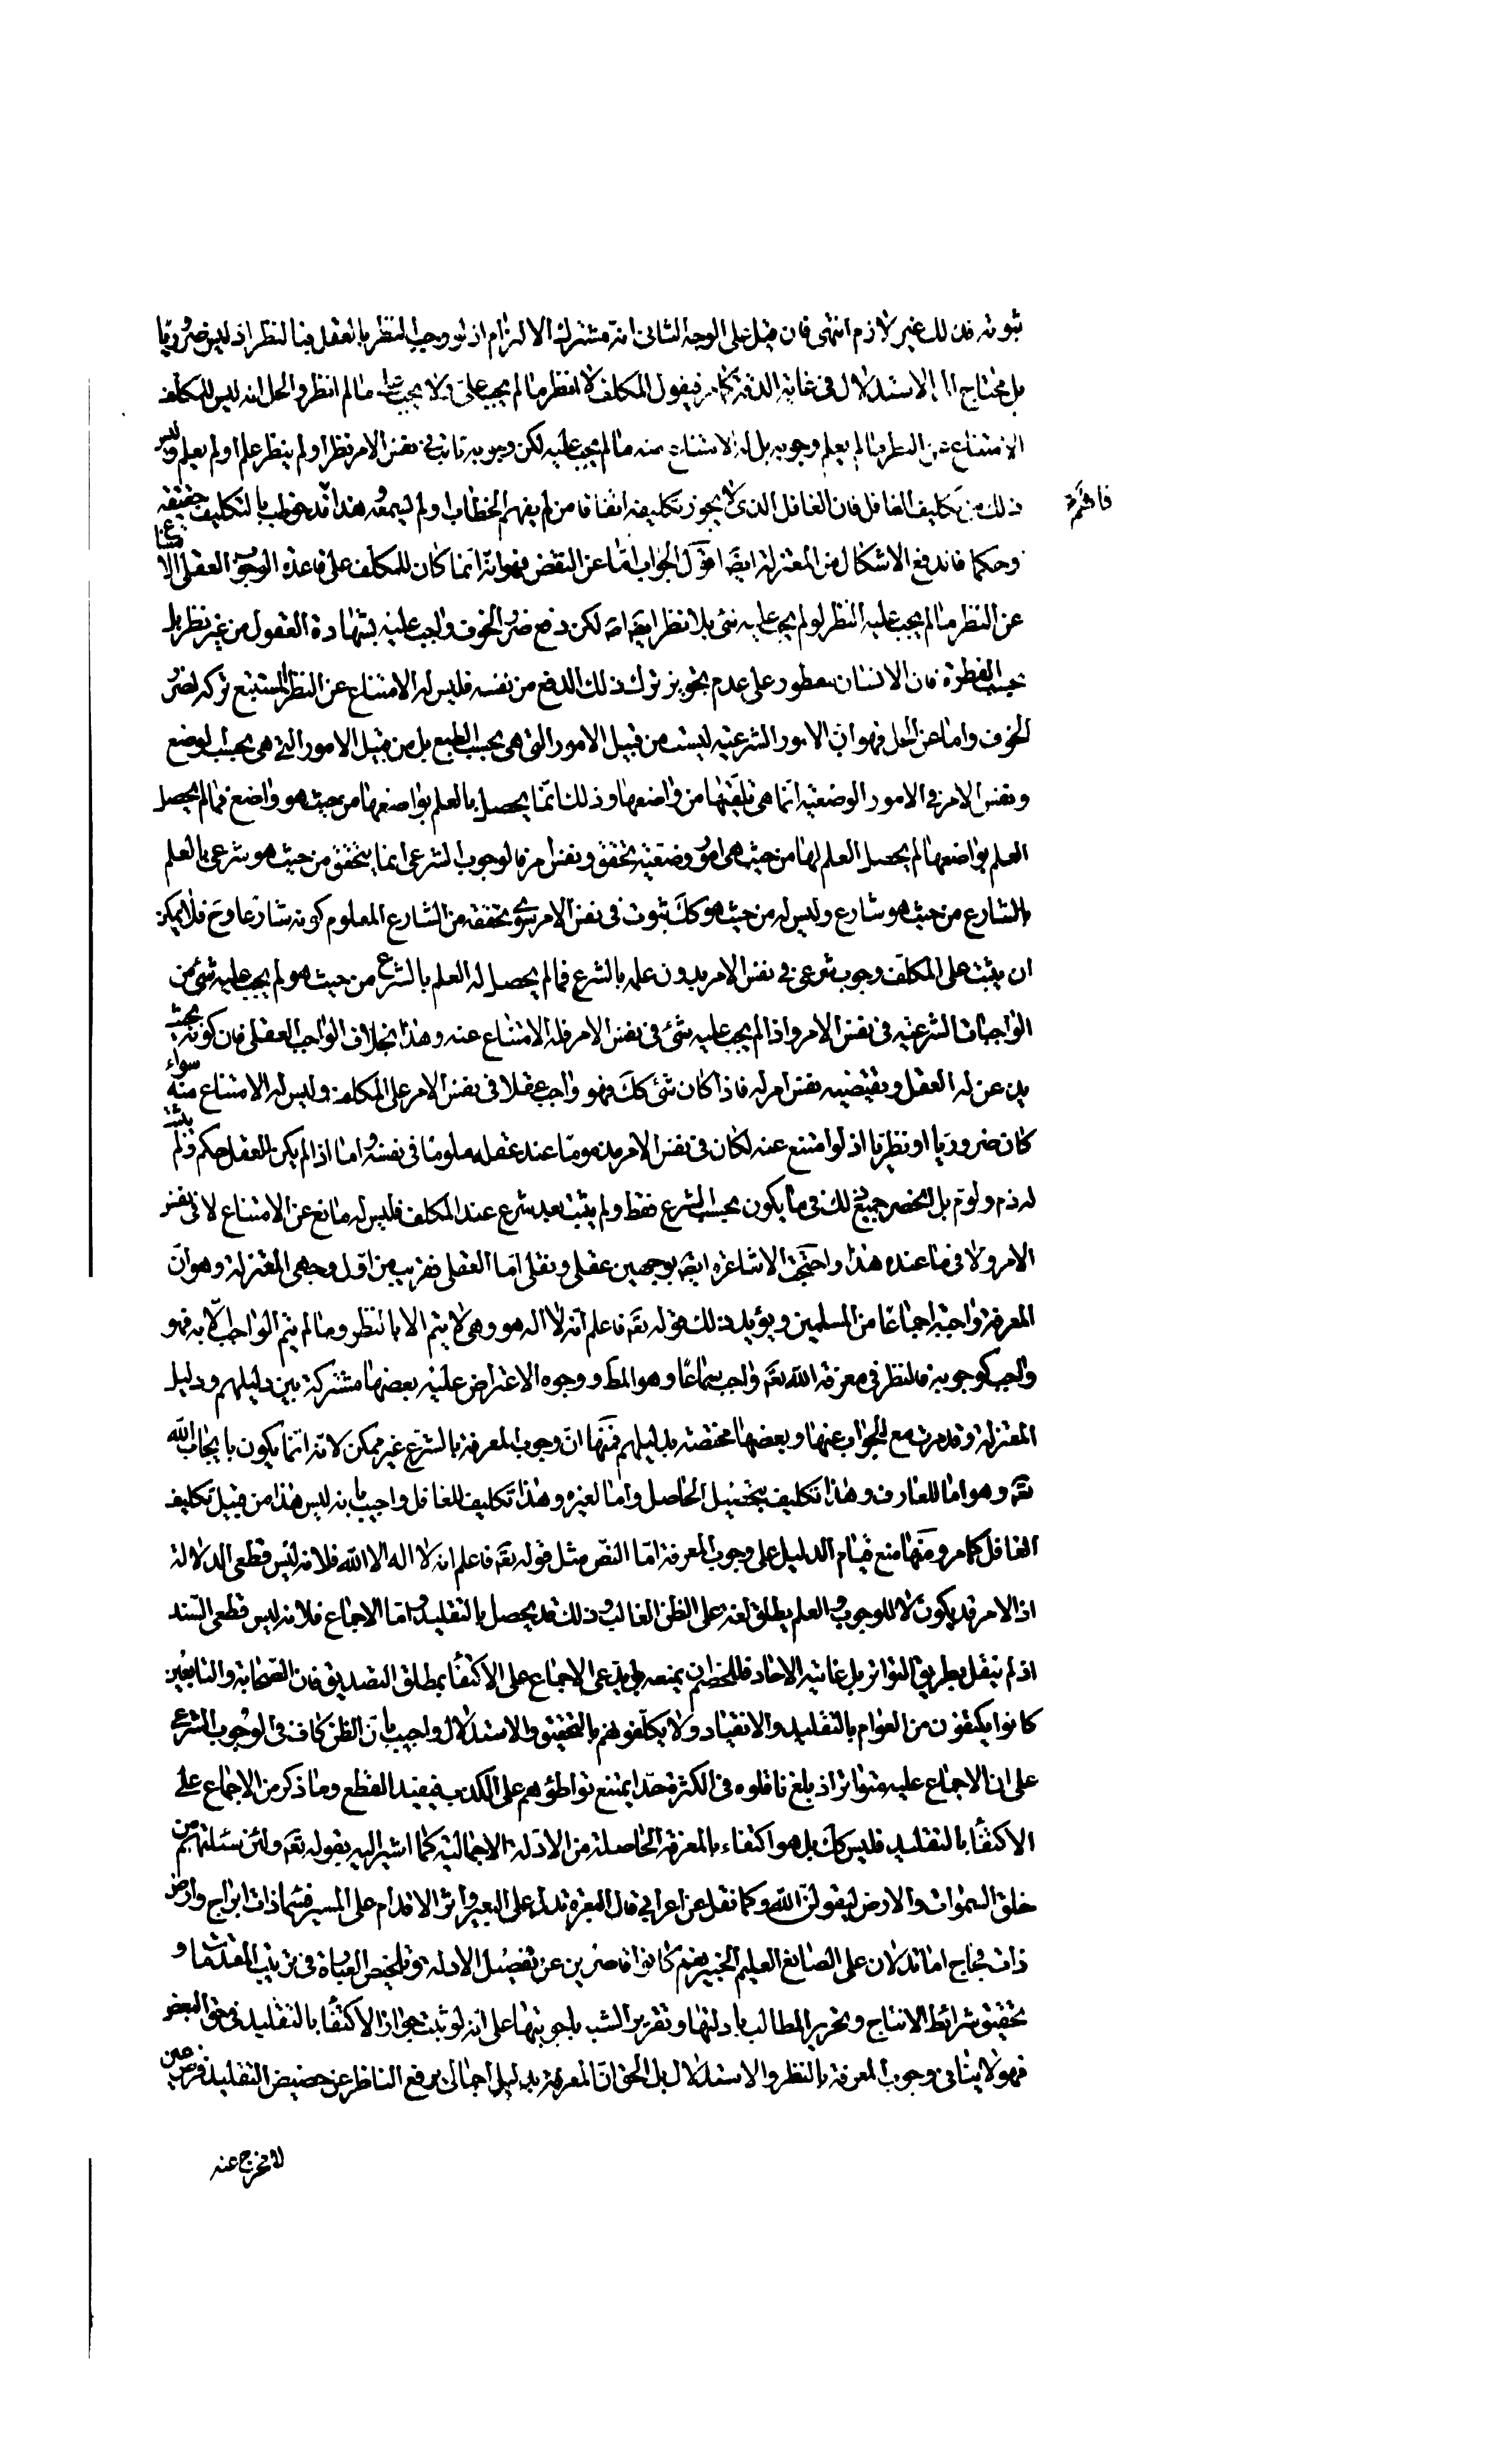 ثبوته فذلك غير لازم انتهى فان قيل على الوجه الثانى انه مشترك الالزام اذ لو وجب النظر بالعقل فبالنظر اذ ليس ضروريا
بل محتاج الى الاستدلال فى غاية الدقة كما مر فيقول المكلف لا انظر ما لم يجب على ولا يجب على ما لم انظر والحل انه ليس للمكلف
الامتناع عن النظر ما لم يعلم وجوبه بل له الامتناع عنه ما لم يجب عليه لكن وجوبه ثابت فى نفس الامر نظر او لم ينظر علم او لم يعلم وليس
ذلك من تكليف الغافل فان الغافل الذى لا يجوز تكليفه اتفاقا من لم يفهم الخطاب او لم يسمعه وهذا قد خوطب بالتكليف حقيقة
فافهم
وحكما فاندفع الاشكال من المعتزلة ايضا اقول الجواب اما عن النقض فهو انه انما كان للمكلف على قاعدة الوجوب العقلى الامتناع
عن النظر ما لم يجب عليه النظر لو لم يجب عليه شئ بلا نظر ايضا لكن دفع ضرر الخوف واجب عليه بشهادة العقول من غير نظر بل
بحسب الفطرة فان الانسان مفطور على عدم تجويز ترك ذلك الدفع من نفسه فليس له الامتناع عن النظر المستتبع تركه لضرر
الخوف واما عن الحل فهو ان الامور الشرعية ليست من قبيل الامور التى هى بحسب الطبع بل من قبيل الامور التى هى بحسب الوضع
ونفس الامر فى الامور الوضعية انما هى تلقيها من واضعها وذلك انما يحصل بالعلم بواضعها من حيث هو واضع فما لم يحصل
العلم بواضعها لم يحصل العلم لها من حيث هى امور وضعية تحقق ونفس امر فالوجوب الشرعى انما يتحقق من حيث هو شرعى بالعلم
بالشارع من حيث هو شارع وليس له من حيث هو كك ثبوت فى نفس الامر سوى تحققه من الشارع المعلوم كونه شارعا وح فلا يمكن
ان يثبت على المكلف وجوب شرعى فى نفس الامر بدون علمه بالشرع فما لم يحصل له العلم بالشرع من حيث هو لم يجب عليه شئ من
الواجبات الشرعية فى نفس الامر واذا لم يجب عليه شئ فى نفس الامر فله الامتناع عنه وهذا بخلاف الواجب العقلى فان كونه بحيث
يذعن له العقل ويقتضيه نفس امر له فاذا كان شئ كك فهو واجب عقلا فى نفس الامر على المكلف وليس له الامتناع منه سواء
كان ضروريا او نظريا اذ لو امتنع عنه لكان فى نفس الامر مذموما عند عقله ملوما فى نفسه واما اذا لم يكن للعقل حكم ولم يثبت
له ذم ولوم بل انحصر جميع ذلك فى ما يكون بحسب الشرع فقط ولم يثبت بعد شرع عند المكلف فليس له مانع عن الامتناع لا فى نفس
الامر ولا فى ما عنده هذا واحتجت الاشاعرة ايضا بوجهين عقلى ونقلى اما العقلى فقريب من اول وجهى المعتزلة وهو ان
المعرفة واجبة اجماعا من المسلمين ويؤيد ذلك قوله تعه فاعلم انه لا اله هو وهى لا يتم الا بالنظر وما لم يتم الواجب الا به فهو
واجب كوجوبه فالنظر فى معرفة الله تعه واجب سماعا وهو المط ووجوه الاعتراض عليه بعضها مشتركة بين دليلهم ودليل
المعتزلة وقد مرت مع الجواب عنها وبعضها مختصة بدليلهم فمنها ان وجوب المعرفة بالشرع غير ممكن لانه انما يكون بايجاب الله
تعه وهو اما للعارف وهذا تكليف بتحصيل الحاصل واما لغيره وهذا تكليف للغافل واجيب بانه ليس هذا من قبيل تكليف
الغافل كما مر ومنها منع قيام الدليل على وجوب المعرفة اما النص مثل قوله تعه فاعلم انه لا اله الا الله فلانه ليس قطعى الدلالة
اذ الامر قد يكون لا للوجوب والعلم يطلق لغة على الظن الغالب وذلك قد يحصل بالتقليد واما الاجماع فلانه ليس قطعى السند
اذ لم ينقل بطريق التواتر بل غايته الاحاد فللخصم ان يمنعه بل يدعى الاجماع على الاكتفاء بمطلق التصديق فان الصحابة والتابعين
كانوا يكتفون من العوام بالتقليد والانقياد ولا يكلفونهم بالتحقيق والاستدلال واجيب بان الظن كاف فى الوجوب الشرعى
على ان الاجماع عليه متواتر اذ بلغ ناقلوه فى الكثرة حدا يمتنع تواطؤهم على الكذب فيفيد القطع وما ذكر من الاجماع على
الاكتفاء بالتقليد فليس كك بل هو اكتفاء بالمعرفة الحاصلة من الادلة الاجمالية كما اشير اليه بقوله تعه ولئن سئلتهم من
خلق السموات والارض ليقولن الله وكما نقل عن اعرابى قال البعرة تدل على البعير واثر الاقدام على المسير فسماء ذات ابراج وارض
ذات فجاج اما تدلان على الصانع العليم الخبير نعم كانوا قاصرين عن تفصيل الادلة وتلخيص العبارة فى ترتيب المقدمات و
تحقيق شرائط الانتاج وتحرير المطالب بادلتها وتقرير الشبه باجوبتها على انه لو ثبت جواز الاكتفاء بالتقليد فى حق البعض
فهو لا ينافى وجوب المعرفة بالنظر والاستدلال بل الحق ان المعرفة بدليل اجمالى يرفع الناظر عن حضيض التقليد فرض عين
لا مخرج عنه